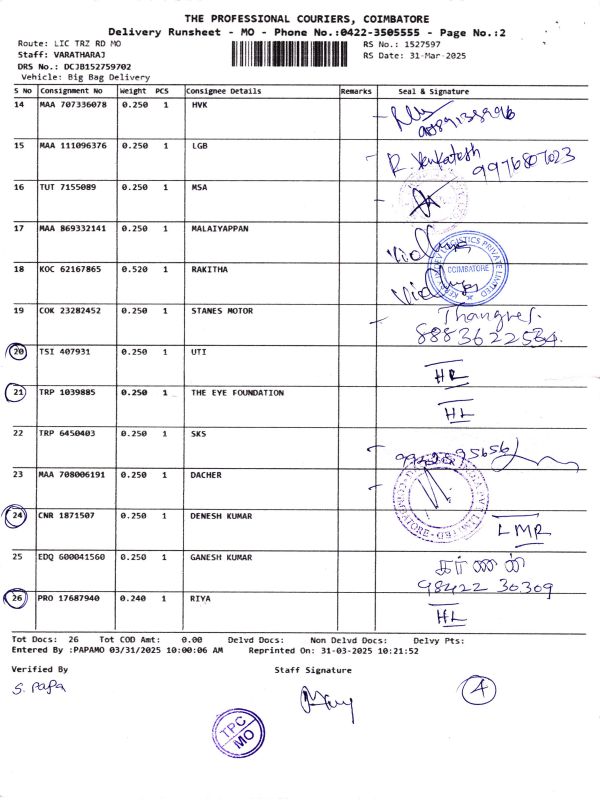 THE PROFESSIONAL COURIERS, COIMBATORE
Delivery Runsheet - MO - Phone No.:0422-3505555 - Page No.:2
Route: LIC TRZ RD MO RS No.: 1527597
Staff: VARATHARAJ RS Date: 31-Mar-2025
DRS No.: DCJB152759702
Vehicle: Big Bag Delivery
S No Consignment No Weight PCS Consignee Details Remarks Seal & Signature
14 MAA 707336078 0.250 1 HVK
15 MAA 111096376 0.250 1 LGB R. Venkatesh
16 TUT 7155089 0.250 1 MSA
17 MAA 869332141 0.250 1 MALAIYAPPAN
18 KOC 62167865 0.520 1 RAKITHA COIMBATORE
19 COK 23282452 0.250 1 STANES MOTOR
8883622534.
20 TSI 407931 0.250 1 UTI HR
21 TRP 1039885 0.250 1 THE EYE FOUNDATION HL
22 TRP 6450403 0.250 1 SKS
23 MAA 708006191 0.250 1 DACHER
24 CNR 1871507 0.250 1 DENESH KUMAR LMR
25 EDQ 600041560 0.250 1 GANESH KUMAR
98422 30309
26 PRO 17687940 0.240 1 RIYA HL
Tot Docs: 26 Tot COD Amt: 0.00 Delvd Docs: Non Delvd Docs: Delvy Pts:
Entered By :PAPAMO 03/31/2025 10:00:06 AM Reprinted On: 31-03-2025 10:21:52
Verified By Staff Signature
S. Papa
4
TPC
MO